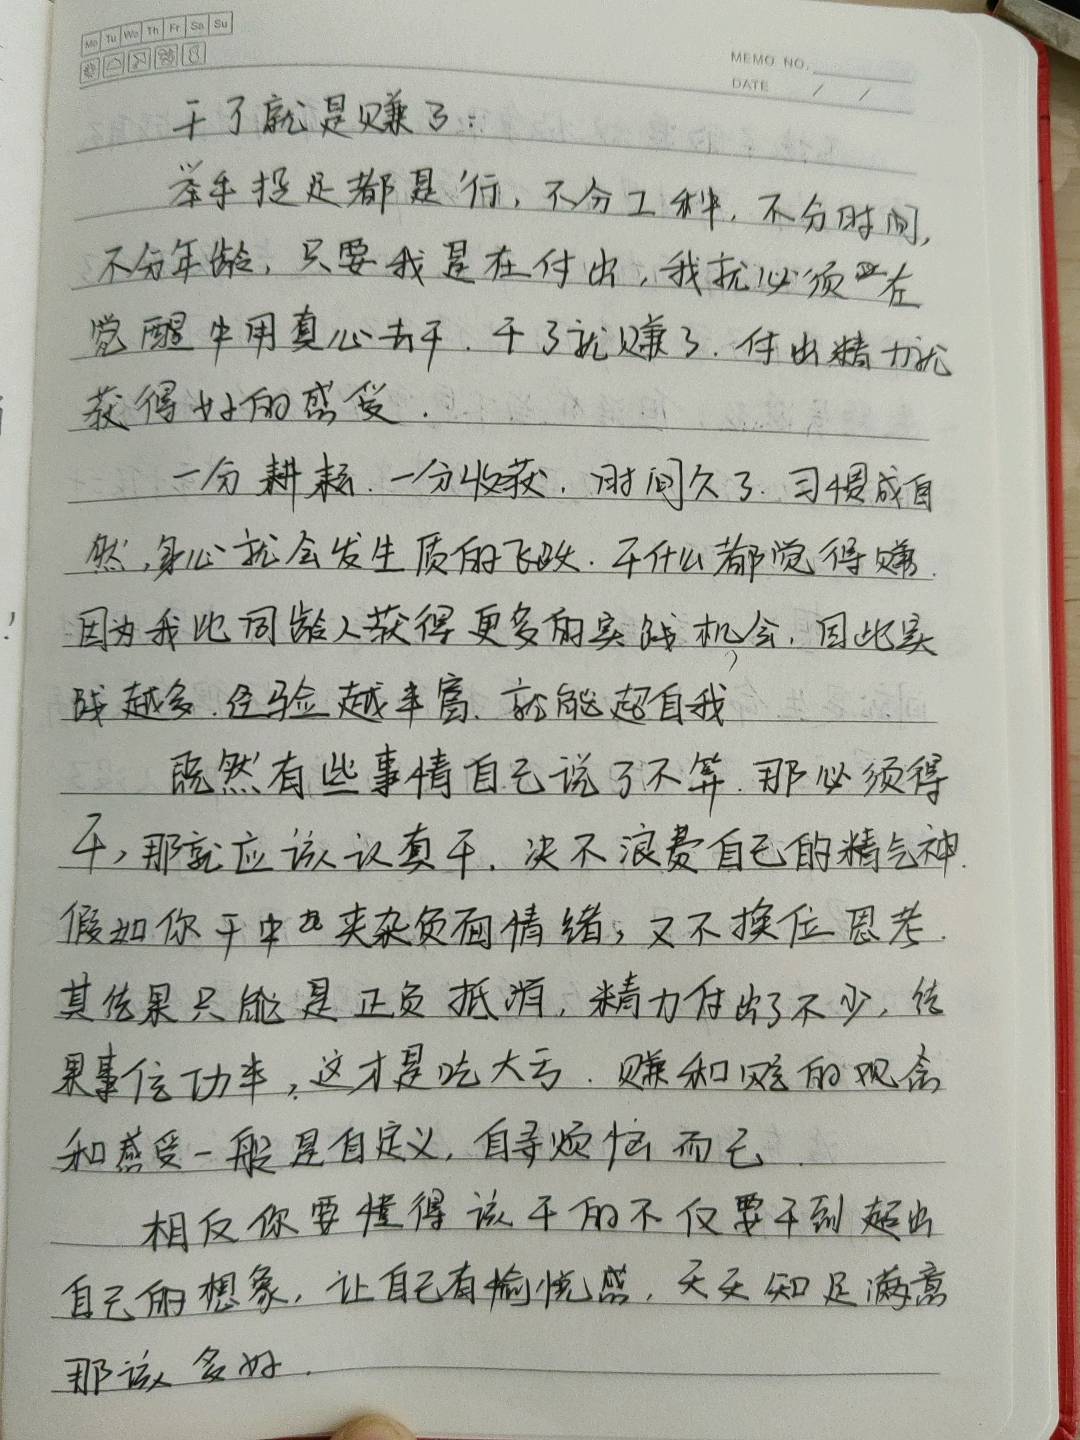 Mo Tu We Th Fr Sa Su
MEMO NO.
DATE / /
干了就是赚了：
举手投足都是行，不分工种，不分时间，
不分年龄，只要我是在付出，我就必须在
觉醒中用真心去干．干了就赚了．付出精力就
获得好的感受．
一分耕耘．一分收获．时间久了．习惯成自
然，身心就会发生质的飞跃．干什么都觉得赚．
因为我比同龄人获得更多的实践机会．因此实
践越多．经验越丰富．就能超自我
既然有些事情自己说了不算．那必须得
干，那就应该认真干．决不浪费自己的精气神．
假如你干中夹杂负面情绪，又不换位思考．
其结果只能是正负抵消，精力付出了不少，结
果事倍功率，这才是吃大亏．赚和赔的观念
和感受一般是自定义，自寻烦恼而已．
相反你要懂得该干的不仅要干到超出
自己的想象，让自己有愉悦感，天天知足满意
那该多好．